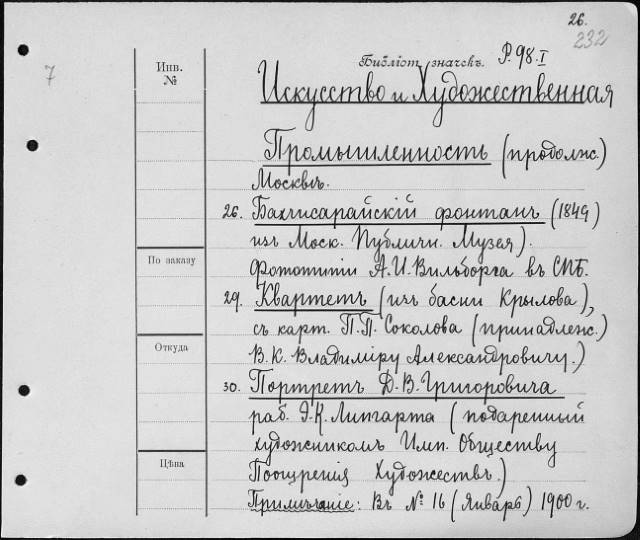 26.
232
7
Инв.
№
По заказу
Откуда
Цѣна
Библіот. значекъ. Р.98.I
Искусство и Художественная
Промышленность (продолж.)
Москвѣ.
26. Бахчисарайскій фонтанъ (1849)
изъ Моск. Публичн. Музея).
Фототипіи А.И.Вильборга въ СПБ.
29. Квартетъ (изъ басни Крылова),
съ карт. П.П. Соколова (принадлеж.)
В.К. Владиміру Александровичу.)
30. Портретъ Д.В. Григоровича
раб. Э.К. Липгарта (подаренный
художникомъ Имп. Обществу
Поощренія Художествъ.)
Примѣчаніе: Въ № 16 (Январь) 1900 г.